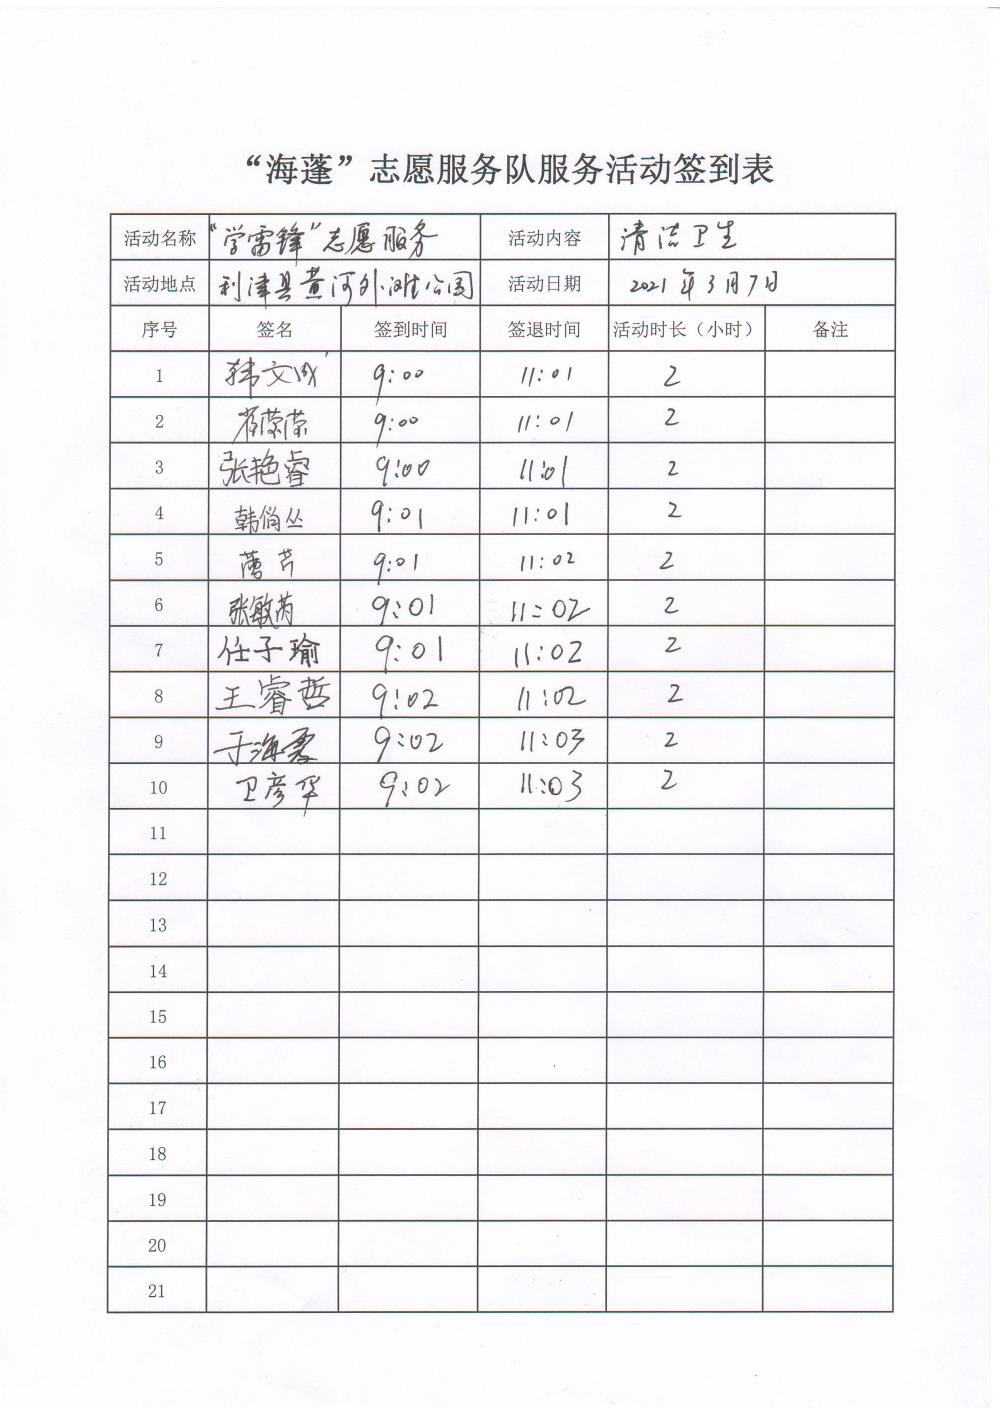 “海蓬”志愿服务队服务活动签到表
活动名称 “学雷锋”志愿服务 活动内容 清洁卫生
活动地点 利津县黄河外滩公园 活动日期 2021年3月7日
序号 签名 签到时间 签退时间 活动时长（小时） 备注
1 韩文成 9:00 11:01 2
2 荣荣 9:00 11:01 2
3 张艳睿 9:00 11:01 2
4 韩俏丛 9:01 11:01 2
5 9:01 11:02 2
6 张敏芮 9:01 11:02 2
7 任子瑜 9:01 11:02 2
8 王睿哲 9:02 11:02 2
9 于海 9:02 11:03 2
10 卫彦华 9:02 11:03 2
11
12
13
14
15
16
17
18
19
20
21